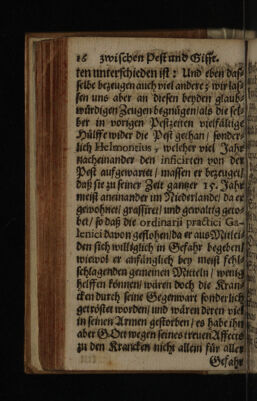 16 zwischen Pest und Gifft.
ten unterschieden ist: Und eben das-
selbe bezeugen auch viel andere; wir las-
sen uns aber an diesen beyden glaub-
würdigen Zeugen begnügen / als die sel-
ber in vorigen Pestzeiten vielfältige
Hülffe wider die Pest gethan / sonder-
lich Helmontius, welcher viel Jahr
nacheinander den inficirten von der
Pest aufgewartet / massen er bezeuget /
daß sie zu seiner Zeit gantzer 15. Jahr
meist aneinander im Niederlande / da er
gewohnet / grassiret / und gewaltig geto-
bet / so daß die ordinarii practici Ga-
lenici davon geflohen / da er aus Mitlei-
den sich williglich in Gefahr begeben /
wiewol er anfänglich bey meist fehl-
schlagenden gemeinen Mitteln / wenig
helffen können / wären doch die Kran-
cken durch seine Gegenwart sonderlich
getröstet worden / und wären deren viel
in seinen Armen gestorben / es habe ihn
aber GOtt wegen seines treuen Affects
zu den Krancken nicht allein für aller
Gefahr